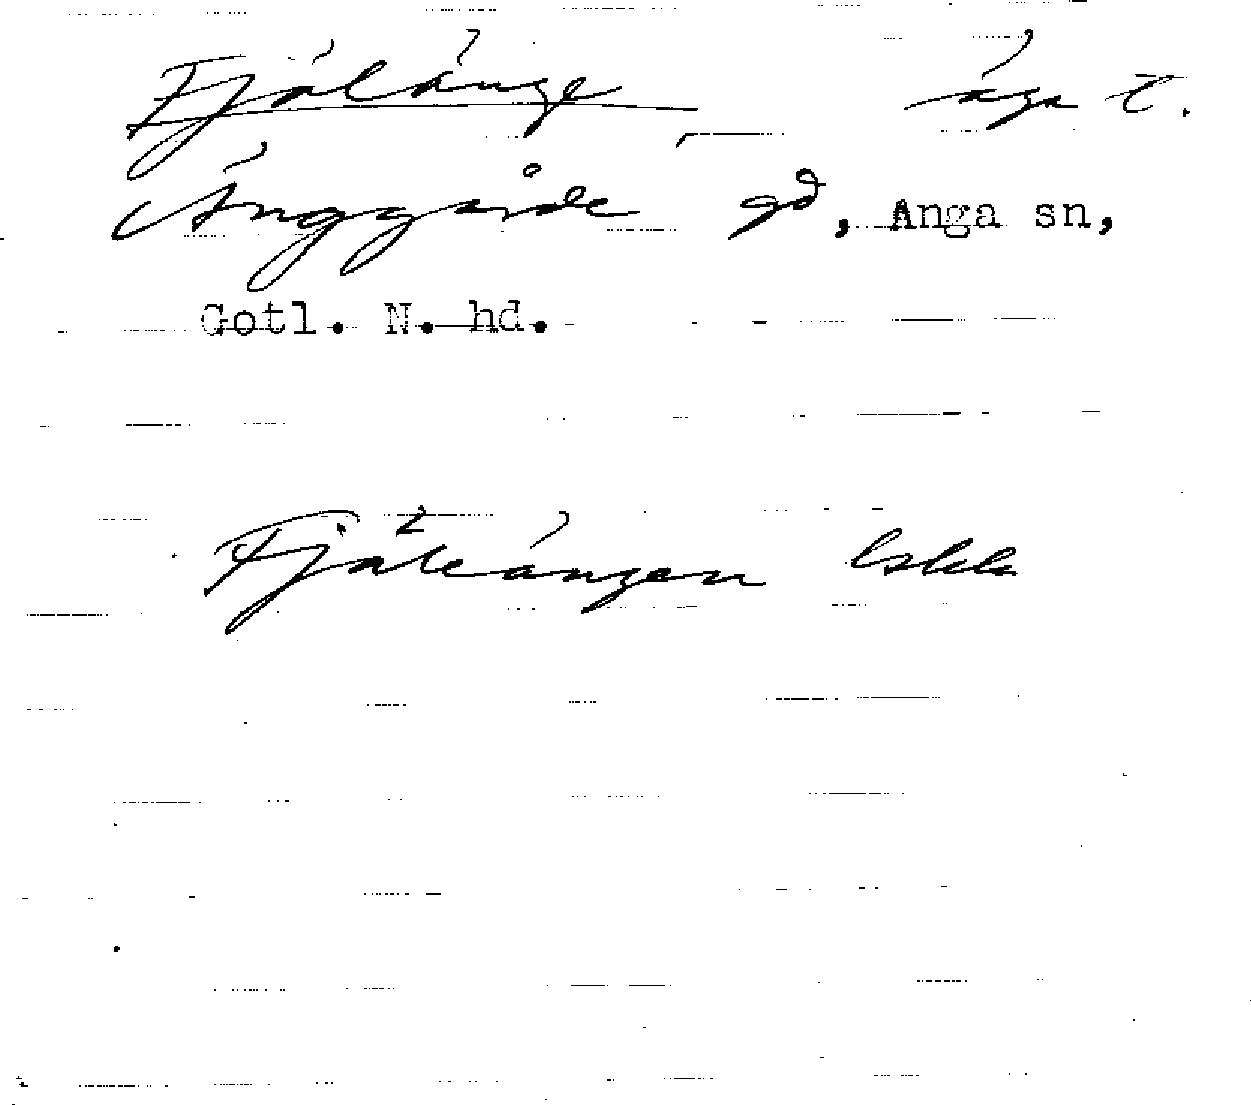 Fjälänge äga t.
Änggårde gd, Anga sn,
Gotl. N. hd.
Fjäleängen